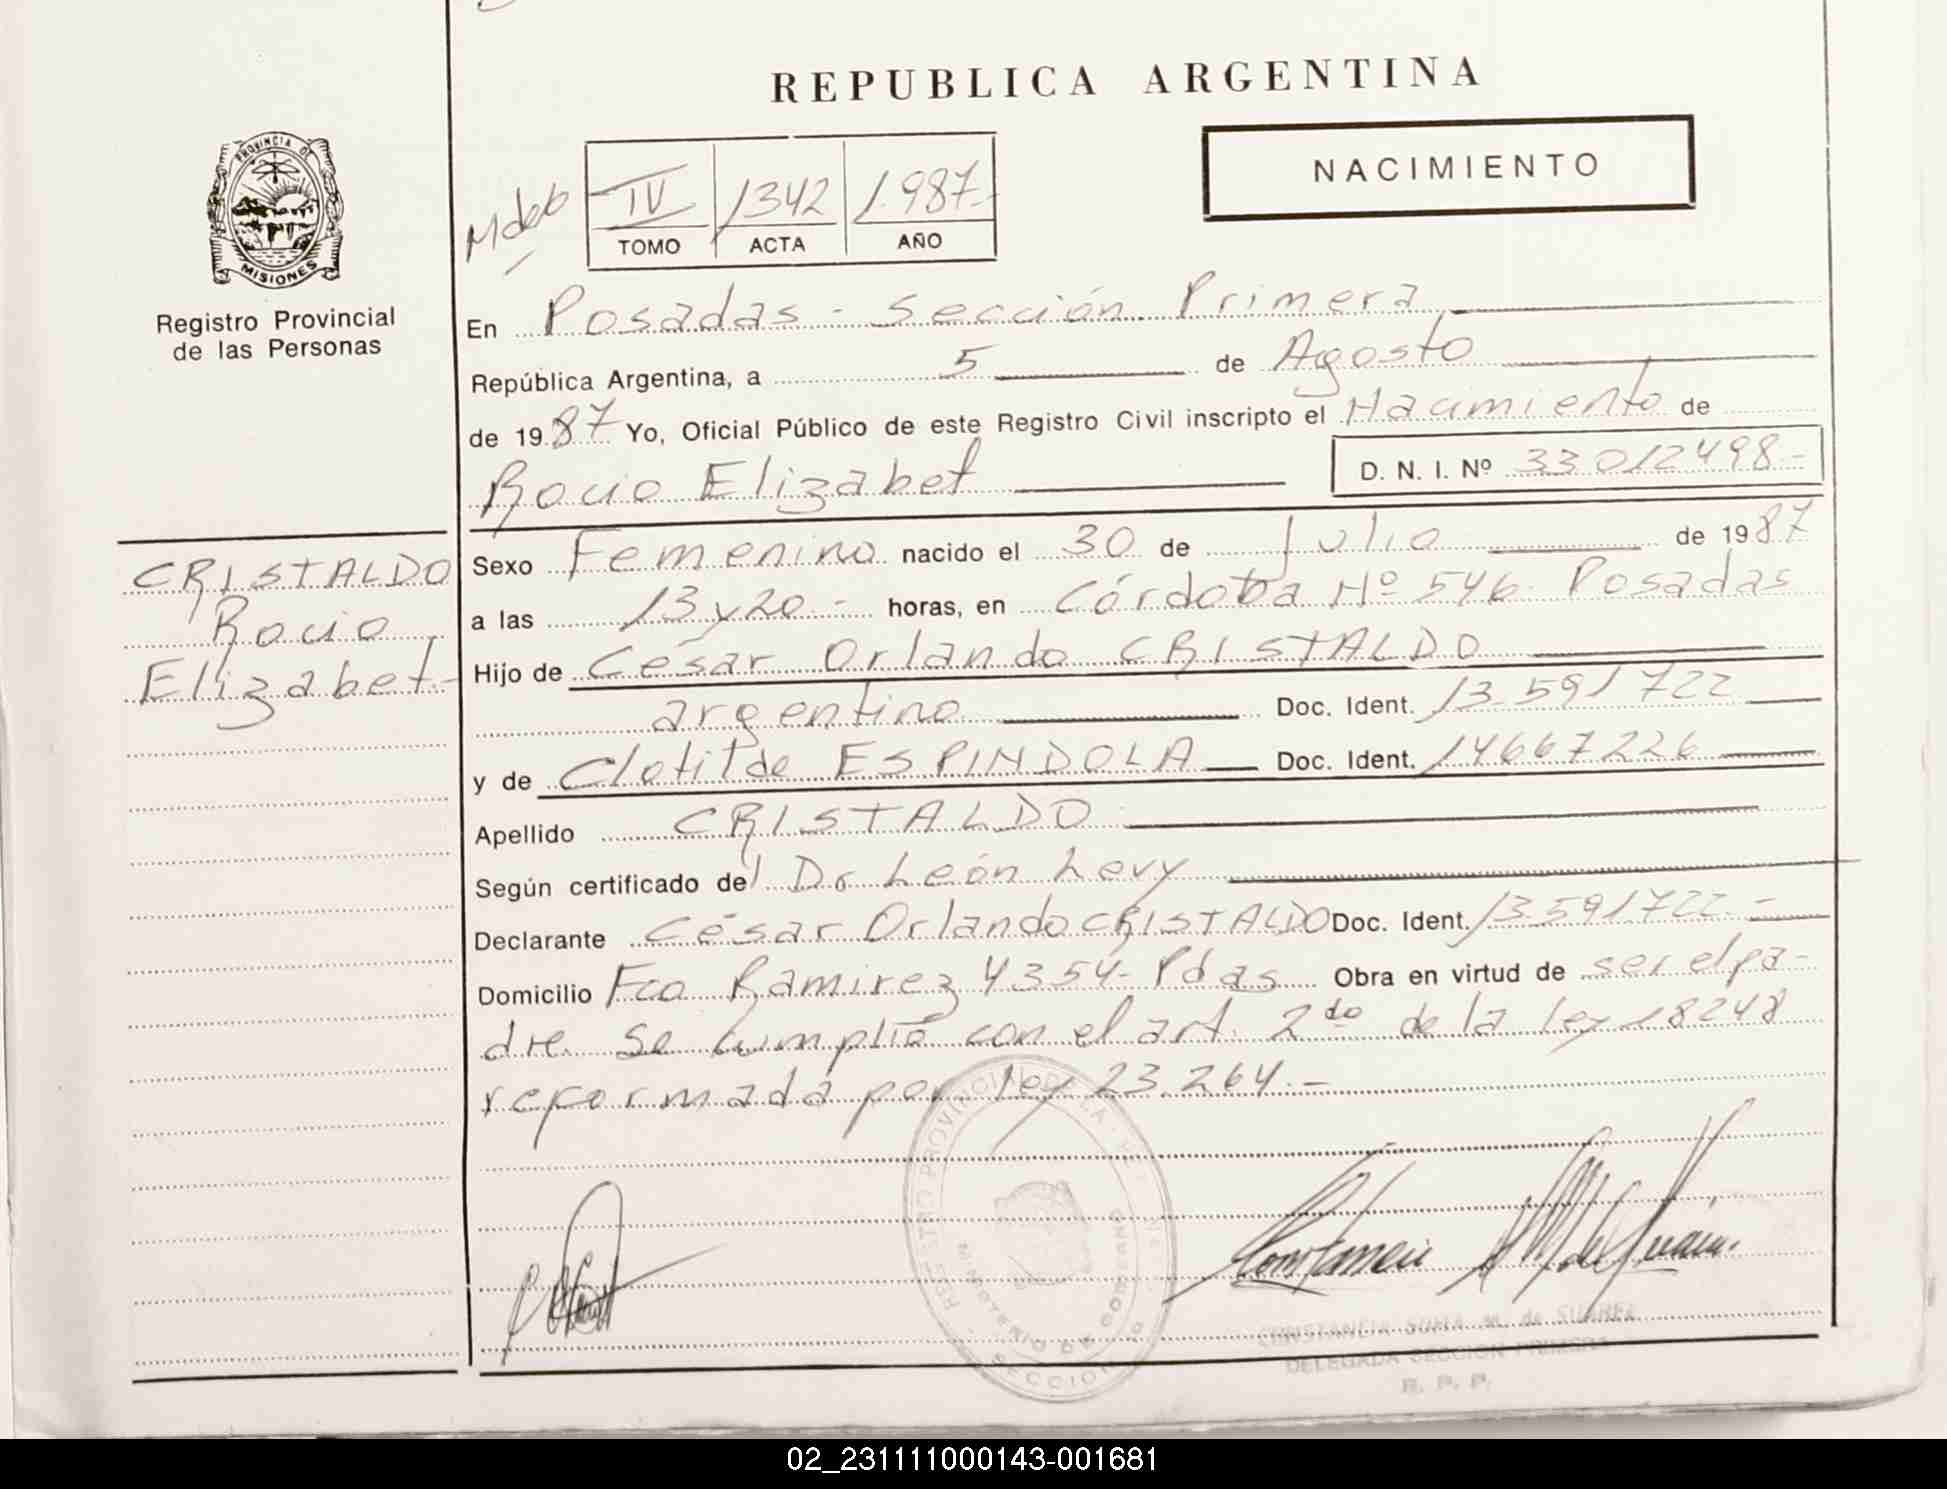 REPUBLICA ARGENTINA
NACIMIENTO
PROVINCIA DE
MISIONES
Registro Provincial
de las Personas
IV 1342 1.987-
TOMO ACTA AÑO
En Posadas - Sección Primera
República Argentina, a 5 de Agosto
de 1987 Yo, Oficial Público de este Registro Civil inscripto el Nacimiento de
Rocio Elizabet D. N. I. Nº 33012498-
CRISTALDO
Rocio
Elizabet.-
Sexo Femenino nacido el 30 de Julio de 1987
a las 13 y 20.- horas, en Córdoba Nº 546. Posadas
Hijo de César Orlando CRISTALDO
argentino Doc. Ident. 13.591722
y de Clotilde ESPINDOLA Doc. Ident. 14667226
Apellido CRISTALDO
Según certificado del Dr León Levy
Declarante César Orlando CRISTALDO Doc. Ident. 13.591722.-
Domicilio Fco Ramirez 4354- Pdas Obra en virtud de ser el pa-
dre. Se cumplió con el art. 2do de la ley 18248
reformada por ley 23.264.-
REGISTRO PROVINCIAL DE LAS
MINISTERIO DE GOBIERNO
SECCION
CONSTANCIA SUNA M. de SUAREZ
DELEGADA SECCION PRIMERA
R. P. P.
02_231111000143-001681